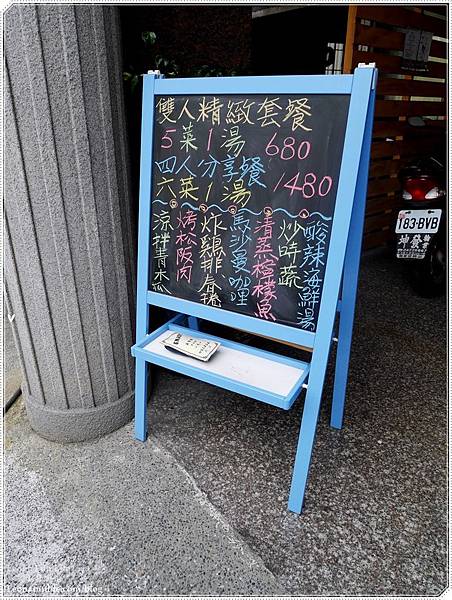 雙人精緻套餐
5菜1湯 680
四人分享餐
六菜1湯 1480
涼拌青木瓜
烤松阪肉
炸雞排春捲
馬沙曼咖哩
清蒸檸檬魚
炒時蔬
酸辣海鮮湯
183-BVB